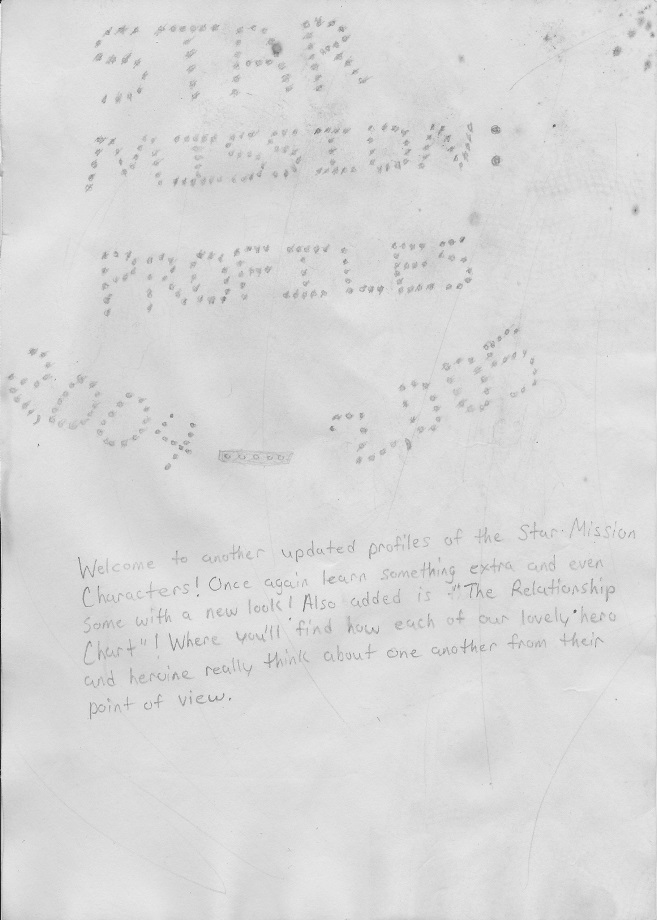 STAR
MISSION:
PROFILES
Welcome to another updated profiles of the Star-Mission
Characters! Once again learn something extra and even
some with a new look! Also added is "The Relationship
Chart"! Where you'll find how each of our lovely hero
and heroine really think about one another from their
point of view.